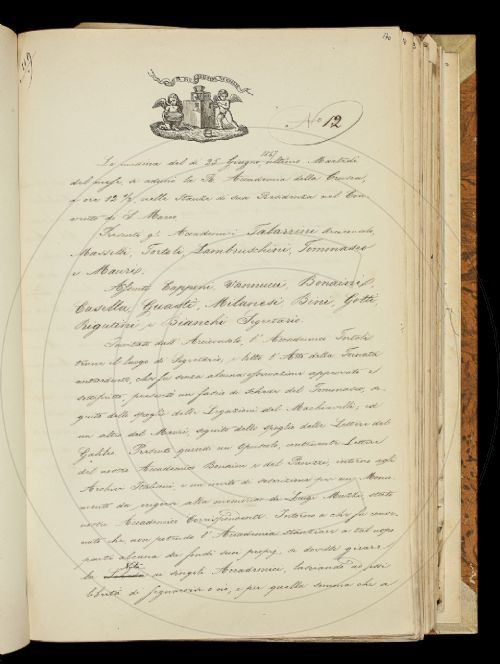 119
170
No 12
La mattina del dì 25 Giugno 1867 ultimo Martedì
del mese, si adunò la R. Accademia della Crusca,
a ore 12 ½, nelle stanze di sua Residenza nel Con-
vento di S. Marco.
Presenti gli Accademici Tabarrini Arciconsolo,
Masselli, Tortoli, Lambruschini, Tommaseo
e Mauri.
Assenti Capponi, Vannucci, Bonaini,
Casella, Guasti, Milanesi, Bini, Gotti
Rigutini e Bianchi Segretario.
Invitato dall' Arciconsolo, l'Accademico Tortoli
tenne il luogo di Segretario, e letto l'Atto della Tornata
antecedente, che fu senza alcuna osservazione approvato e
sottoscritto, presentò un fascio di schede del Tommaseo, se-
guito dello spoglio delle Legazioni del Machiavelli; ed
un altro del Mauri, seguito dello spoglio delle Lettere del
Galileo. Presentò quindi un Opuscolo, contenente Lettere
del nostro Accademico Bonaini e del Panizzi, intorno agli
Archivi Italiani e un invito di soscrizione per un Monu-
mento da erigersi alla memoria di Luigi Muzzi, stato
nostro Accademico Corrispondente. Intorno a che fu conve-
nuto che non potendo l'Accademia stanziare a tal uopo
parte alcuna dei fondi suoi propri, si dovesse girare
la Nota ai singoli Accademici, lasciando ad essi
libertà di segnarsi o no, e per quella somma che a